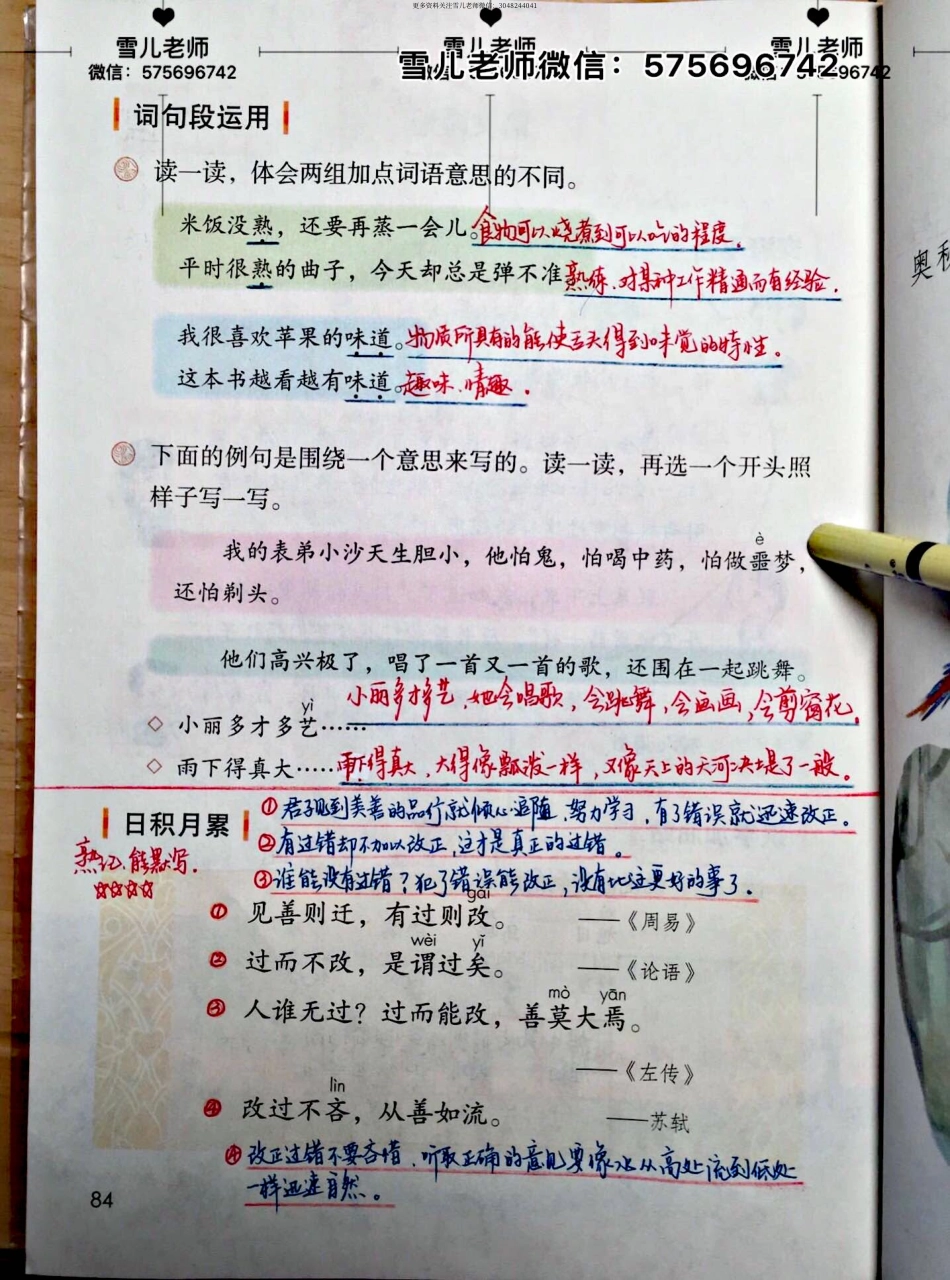 更多资料关注雪儿老师微信：3048244041
雪儿老师 雪儿老师 雪儿老师
微信：575696742
雪儿老师微信：575696742
词句段运用
读一读，体会两组加点词语意思的不同。
米饭没熟，还要再蒸一会儿。食物可以烧煮到可以吃的程度。
平时很熟的曲子，今天却总是弹不准 熟练、对某种工作精通而有经验.
我很喜欢苹果的味道。物质所具有的能使舌头得到味觉的特性。
这本书越看越有味道。趣味、情趣.
下面的例句是围绕一个意思来写的。读一读，再选一个开头照
样子写一写。
è
我的表弟小沙天生胆小，他怕鬼，怕喝中药，怕做噩梦，
还怕剃头。
他们高兴极了，唱了一首又一首的歌，还围在一起跳舞。
小丽多才多艺.她会唱歌，会跳舞，会画画，会剪窗花。
yì
◇ 小丽多才多艺……
◇ 雨下得真大……雨下得真大，大得像瓢泼一样，又像天上的天河决堤了一般。
①君子见到美善的品行就倾心追随，努力学习，有了错误就迅速改正。
日积月累
②有过错却不加以改正，这才是真正的过错。
熟记、能默写.
☆☆☆☆
③谁能没有过错？犯了错误能改正，没有比这更好的事了.
gǎi
① 见善则迁，有过则改。 ——《周易》
wèi yǐ
② 过而不改，是谓过矣。 ——《论语》
mò yān
③ 人谁无过？过而能改，善莫大焉。
——《左传》
lìn
④ 改过不吝，从善如流。 ——苏轼
④改正过错不要吝惜，听取正确的意见要像水从高处流到低处
一样迅速自然。
84